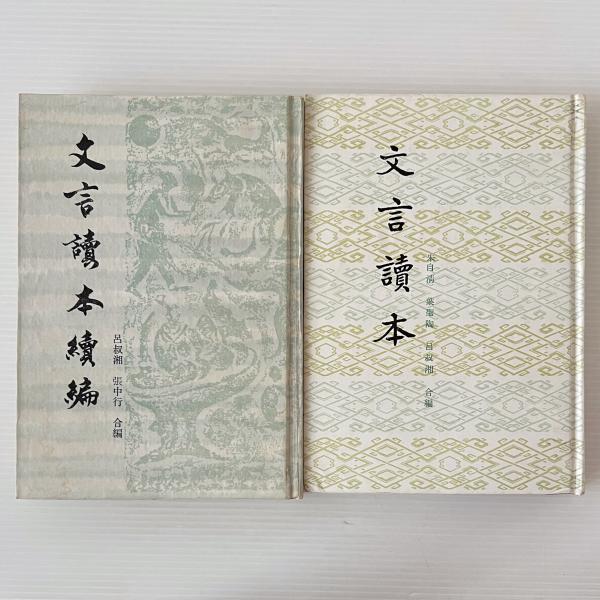 文言讀本續編
呂叔湘 張中行 合編
文言讀本
朱自清 葉聖陶 呂叔湘 合編